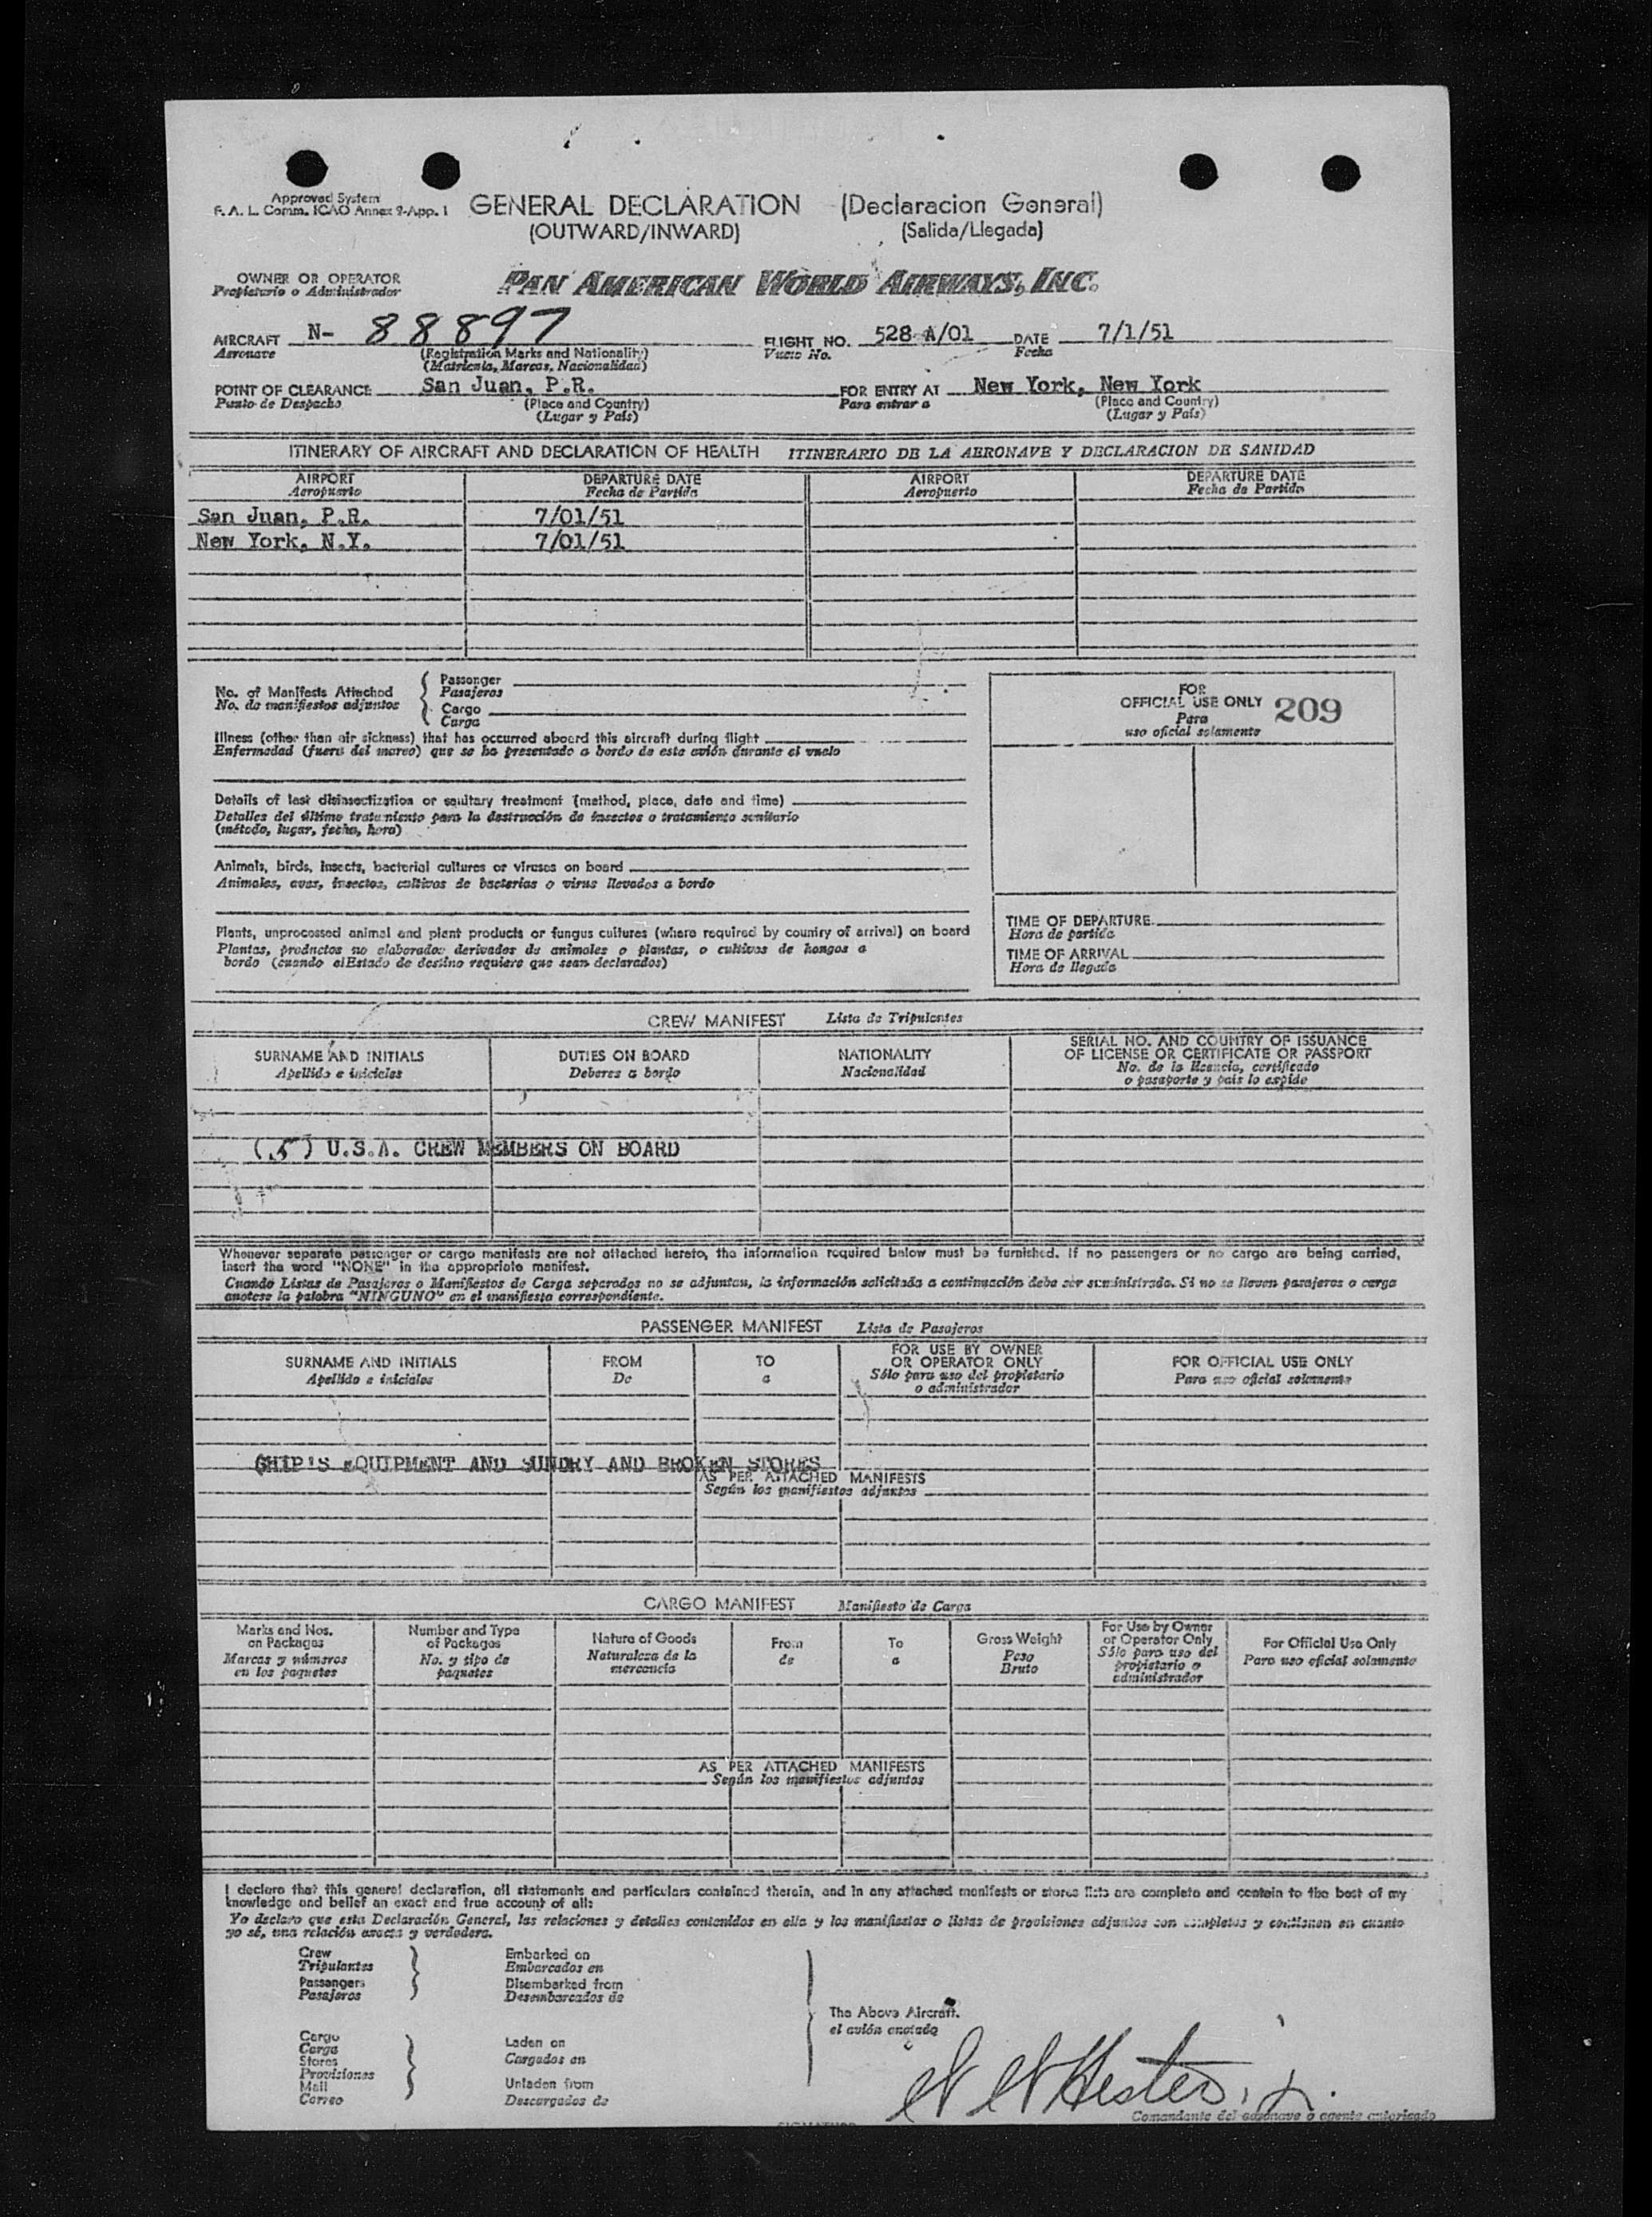 Approved System
F. A. L. Comm. ICAO Annex 9-App. 1
GENERAL DECLARATION (Declaracion General)
(OUTWARD/INWARD) (Salida/Llegada)
OWNER OR OPERATOR
Propietario o Administrador
PAN AMERICAN WORLD AIRWAYS, INC.
AIRCRAFT N- 88897 FLIGHT NO. 528 A/01 DATE 7/1/51
Aeronave (Registration Marks and Nationality) Vuelo No. Fecha
(Matricula, Marcas, Nacionalidad)
POINT OF CLEARANCE San Juan, P.R. FOR ENTRY AT New York, New York
Punto de Despacho (Place and Country) Para entrar a (Place and Country)
(Lugar y País) (Lugar y País)
ITINERARY OF AIRCRAFT AND DECLARATION OF HEALTH ITINERARIO DE LA AERONAVE Y DECLARACION DE SANIDAD
AIRPORT DEPARTURE DATE AIRPORT DEPARTURE DATE
Aeropuerto Fecha de Partida Aeropuerto Fecha de Partida
San Juan, P.R. 7/01/51
New York, N.Y. 7/01/51
No. of Manifests Attached
No. de manifiestos adjuntos
Passenger
Pasajeros
Cargo
Carga
FOR
OFFICIAL USE ONLY 209
Para
uso oficial solamente
Illness (other than air sickness) that has occurred aboard this aircraft during flight
Enfermedad (fuera del mareo) que se ha presentado a bordo de este avión durante el vuelo
Details of last disinsectization or sanitary treatment (method, place, date and time)
Detalles del último tratamiento para la destrucción de insectos o tratamiento sanitario
(método, lugar, fecha, hora)
Animals, birds, insects, bacterial cultures or viruses on board
Animales, aves, insectos, cultivos de bacterias o virus llevados a bordo
Plants, unprocessed animal and plant products or fungus cultures (where required by country of arrival) on board
Plantas, productos no elaborados derivados de animales o plantas, o cultivos de hongos a
bordo (cuando el Estado de destino requiere que sean declarados)
TIME OF DEPARTURE
Hora de partida
TIME OF ARRIVAL
Hora de llegada
CREW MANIFEST Lista de Tripulantes
SURNAME AND INITIALS DUTIES ON BOARD NATIONALITY SERIAL NO. AND COUNTRY OF ISSUANCE
OF LICENSE OR CERTIFICATE OR PASSPORT
Apellido e iniciales Deberes a bordo Nacionalidad No. de la licencia, certificado
o pasaporte y país lo expide
(5) U.S.A. CREW MEMBERS ON BOARD
Whenever separate passenger or cargo manifests are not attached hereto, the information required below must be furnished. If no passengers or no cargo are being carried,
insert the word "NONE" in the appropriate manifest.
Cuando Listas de Pasajeros o Manifiestos de Carga separados no se adjuntan, la información solicitada a continuación debe ser suministrada. Si no se lleven pasajeros o carga
anotese la palabra "NINGUNO" en el manifiesto correspondiente.
PASSENGER MANIFEST Lista de Pasajeros
SURNAME AND INITIALS FROM TO FOR USE BY OWNER
OR OPERATOR ONLY FOR OFFICIAL USE ONLY
Apellido e iniciales De a Sólo para uso del propietario
o administrador Para uso oficial solamente
SHIP'S EQUIPMENT AND SUNDRY AND BROKEN STORES
AS PER ATTACHED MANIFESTS
Según los manifiestos adjuntos
CARGO MANIFEST Manifiesto de Carga
Marks and Nos.
on Packages
Marcas y números
en los paquetes
Number and Type
of Packages
No. y tipo de
paquetes
Nature of Goods
Naturaleza de la
mercancia
From
de
To
a
Gross Weight
Peso
Bruto
For Use by Owner
or Operator Only
Sólo para uso del
propietario o
administrador
For Official Use Only
Para uso oficial solamente
AS PER ATTACHED MANIFESTS
Según los manifiestos adjuntos
I declare that this general declaration, all statements and particulars contained therein, and in any attached manifests or stores lists are complete and contain to the best of my
knowledge and belief an exact and true account of all:
Yo declaro que esta Declaración General, las relaciones y detalles contenidos en ella y los manifiestos o listas de provisiones adjuntos son completos y contienen en cuanto
yo sé, una relación exacta y verdadera.
Crew
Tripulantes
Passengers
Pasajeros
Embarked on
Embarcados en
Disembarked from
Desembarcados de
The Above Aircraft.
el avión anotado
Cargo
Carga
Stores
Provisiones
Mail
Correo
Laden on
Cargados en
Unladen from
Descargados de
Hester, Jr.
Comandante del aeronave o agente autorizado